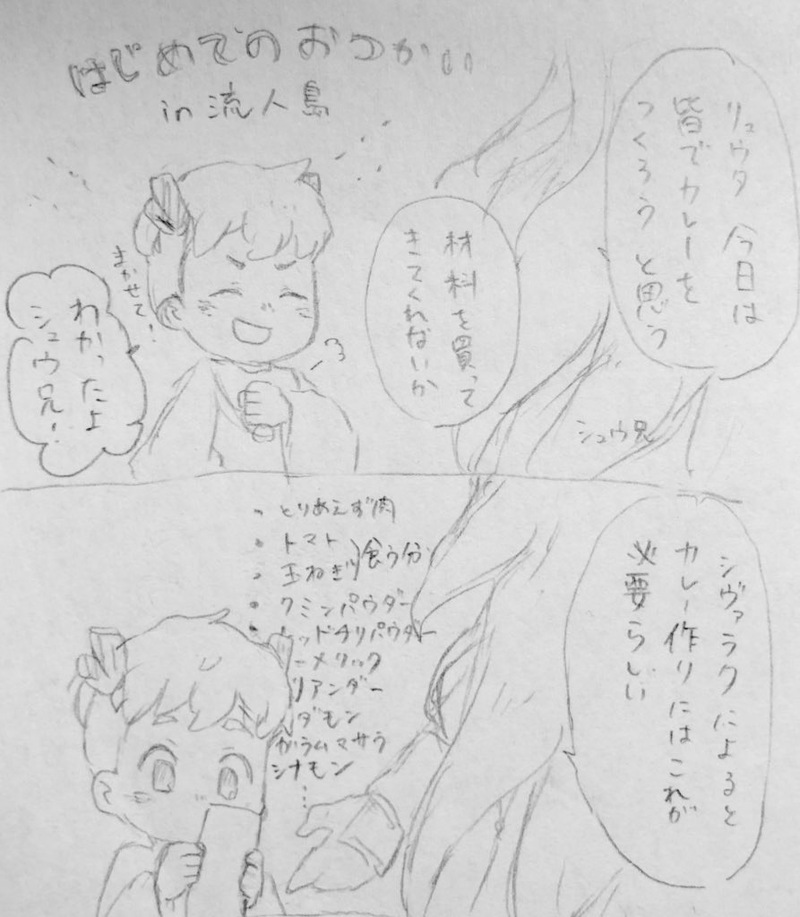 はじめてのおつかい
in 流人島
リュウタ 今日は
皆でカレーを
つくろうと思う
材料を買って
きてくれないか
シュウ兄
まかせて!
わかったよ
シュウ兄!
シヴァラクによると
カレー作りにはこれが
必要らしい
・とりあえず肉
・トマト
・玉ねぎ
食う分
・クミンパウダー
・レッドチリパウダー
ーメリック
リアンダー
ダモン
ガラムマサラ
シナモン
⋮